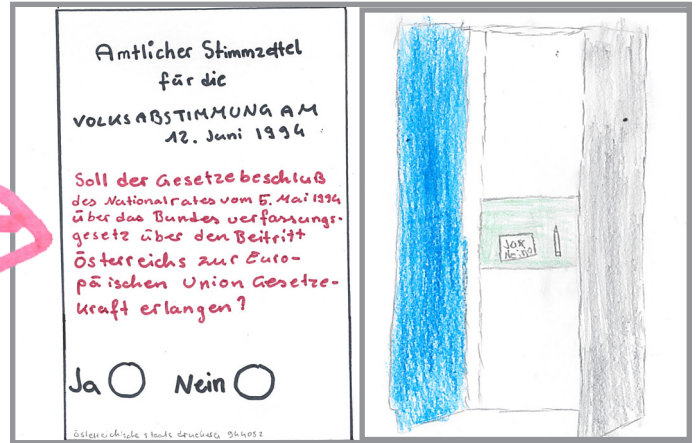 Amtlicher Stimmzettel
für die
VOLKSABSTIMMUNG AM
12. Juni 1994
Soll der Gesetzebeschluß
des Nationalrates vom 5. Mai 1994
über das Bundes verfassungs-
gesetz über den Beitritt
Österreichs zur Euro-
päischen Union Gesetze-
kraft erlangen?
Ja Nein
österreichische staats druckerei 944052
Ja
Nein